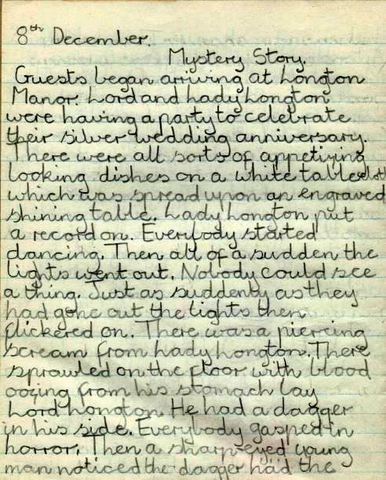 8th December.
Mystery Story.
Guests began arriving at Longton
Manor. Lord and Lady Longton
were having a party to celebrate
their silver wedding anniversary.
There were all sorts of appetiying
looking dishes on a white tablecloth
which was spread upon an engraved
shining table. Lady Longton put
a record on. Everybody started
dancing. Then all of a sudden the
lights went out. Nobody could see
a thing. Just as suddenly as they
had gone out the lights then
flickered on. There was a piercing
scream from Lady Longton. There
sprawled on the floor with blood
oozing from his stomach lay
Lord Longton. He had a dagger
in his side. Everybody gasped in
horror. Then a sharp eyed young
man noticed the dagger had the